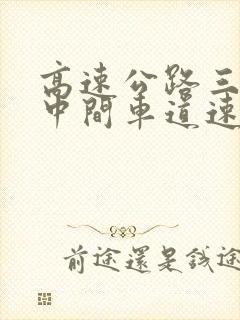 高速公路三
中間車道速
前途還是錢途